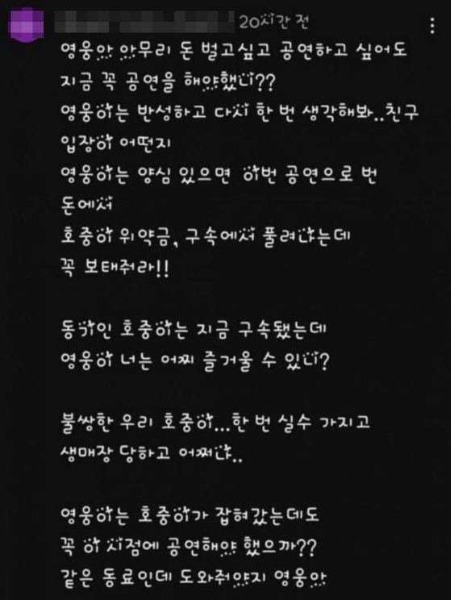 20시간 전
영웅아 아무리 돈 벌고싶고 공연하고 싶어도
지금 꼭 공연을 해야했니??
영웅이는 반성하고 다시 한 번 생각해봐..친구
입장이 어떤지
영웅이는 양심 있으면 이번 공연으로 번
돈에서
호중이 위약금, 구속에서 풀려나는데
꼭 보태줘라!!
동갑인 호중이는 지금 구속됐는데
영웅이 너는 어찌 즐거울 수 있니?
불쌍한 우리 호중이...한 번 실수 가지고
생매장 당하고 어쩌냐..
영웅이는 호중이가 잡혀갔는데도
꼭 이 시점에 공연해야 했으까??
같은 동료인데 도와줘야지 영웅아